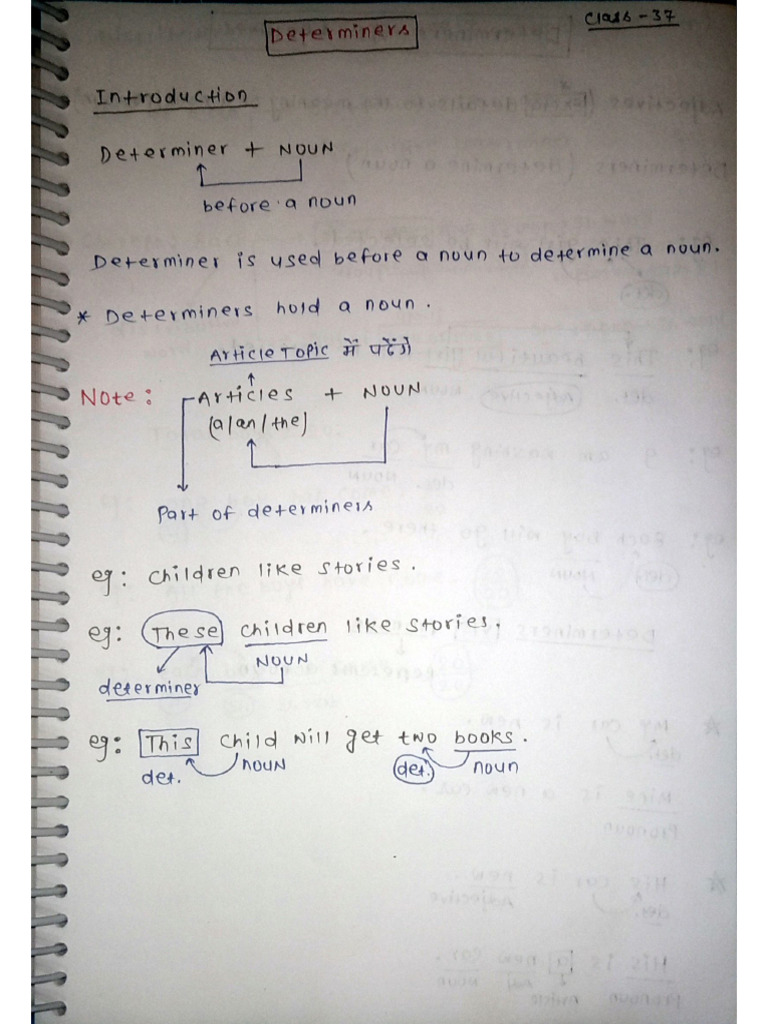 Determiners
Class - 37
Introduction
Determiner + NOUN
before a noun
Determiner is used before a noun to determine a noun.
* Determiners hold a noun.
Article Topic में पढेंगे
Note: Articles + NOUN
(a/an/the)
Part of determiners
eg: Children like stories.
eg: These children like stories.
NOUN
determiner
eg: This child will get two books.
det. NOUN det. noun